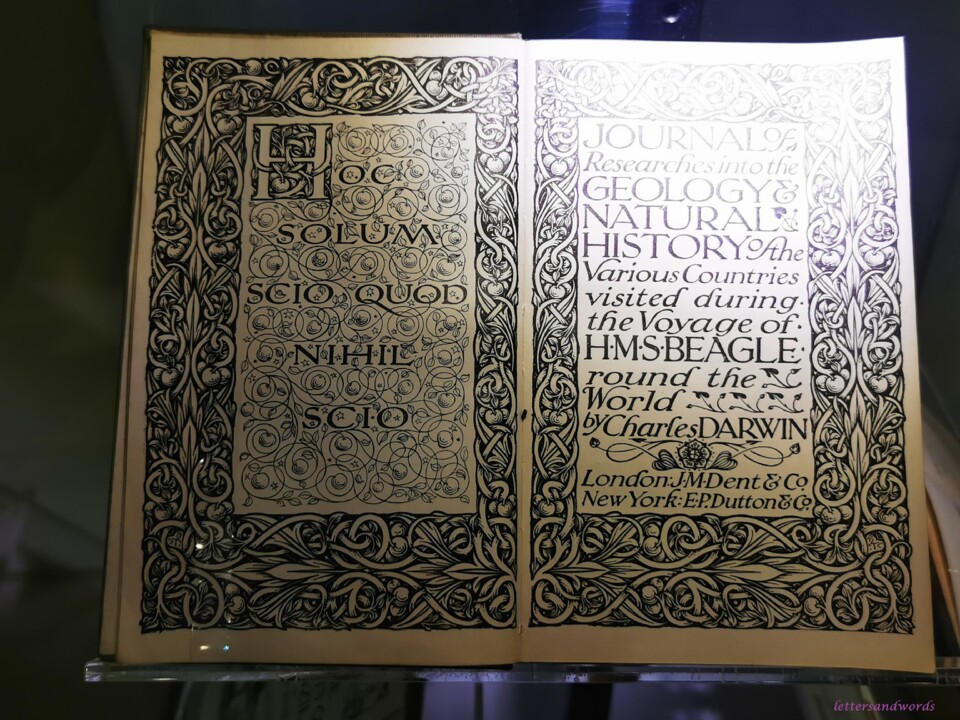 HOC
SOLUM
SCIO QUOD
NIHIL
SCIO
JOURNAL of
Researches into the
GEOLOGY &
NATURAL
HISTORY of the
Various Countries
visited during
the Voyage of
H.M.S. BEAGLE
round the
World
by Charles DARWIN
London: J.M. Dent & Co.
New York: E.P. Dutton & Co.
lettersandwords